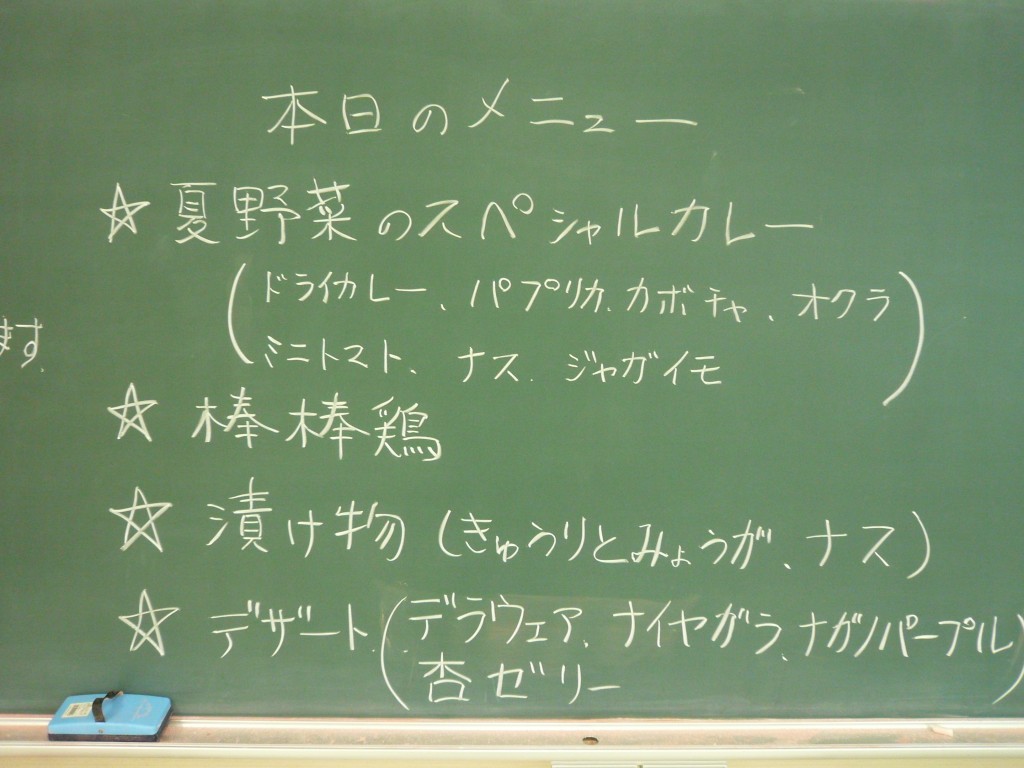 本日のメニュー
☆ 夏野菜のスペシャルカレー
(ドライカレー、パプリカ、カボチャ、オクラ
ミニトマト、ナス、ジャガイモ)
ます。
☆ 棒棒鶏
☆ 漬け物(きゅうりとみょうが、ナス)
☆ デザート(デラウェア、ナイヤガラ、ナガノパープル
杏ゼリー)